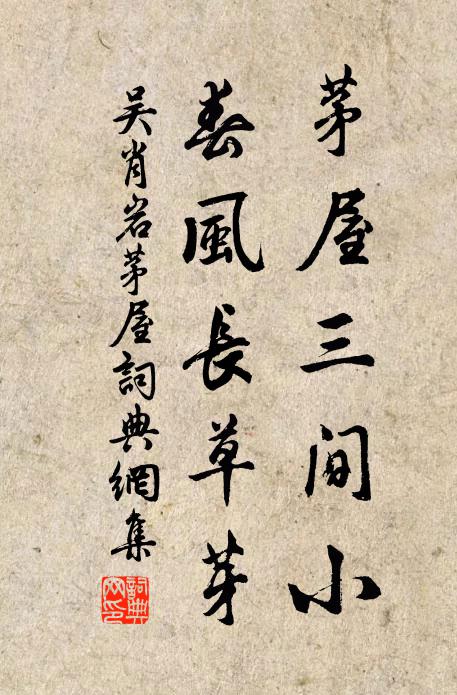 茅屋三间小
春風長草芽
吴肖岩茅屋詞典網集
詞典网印